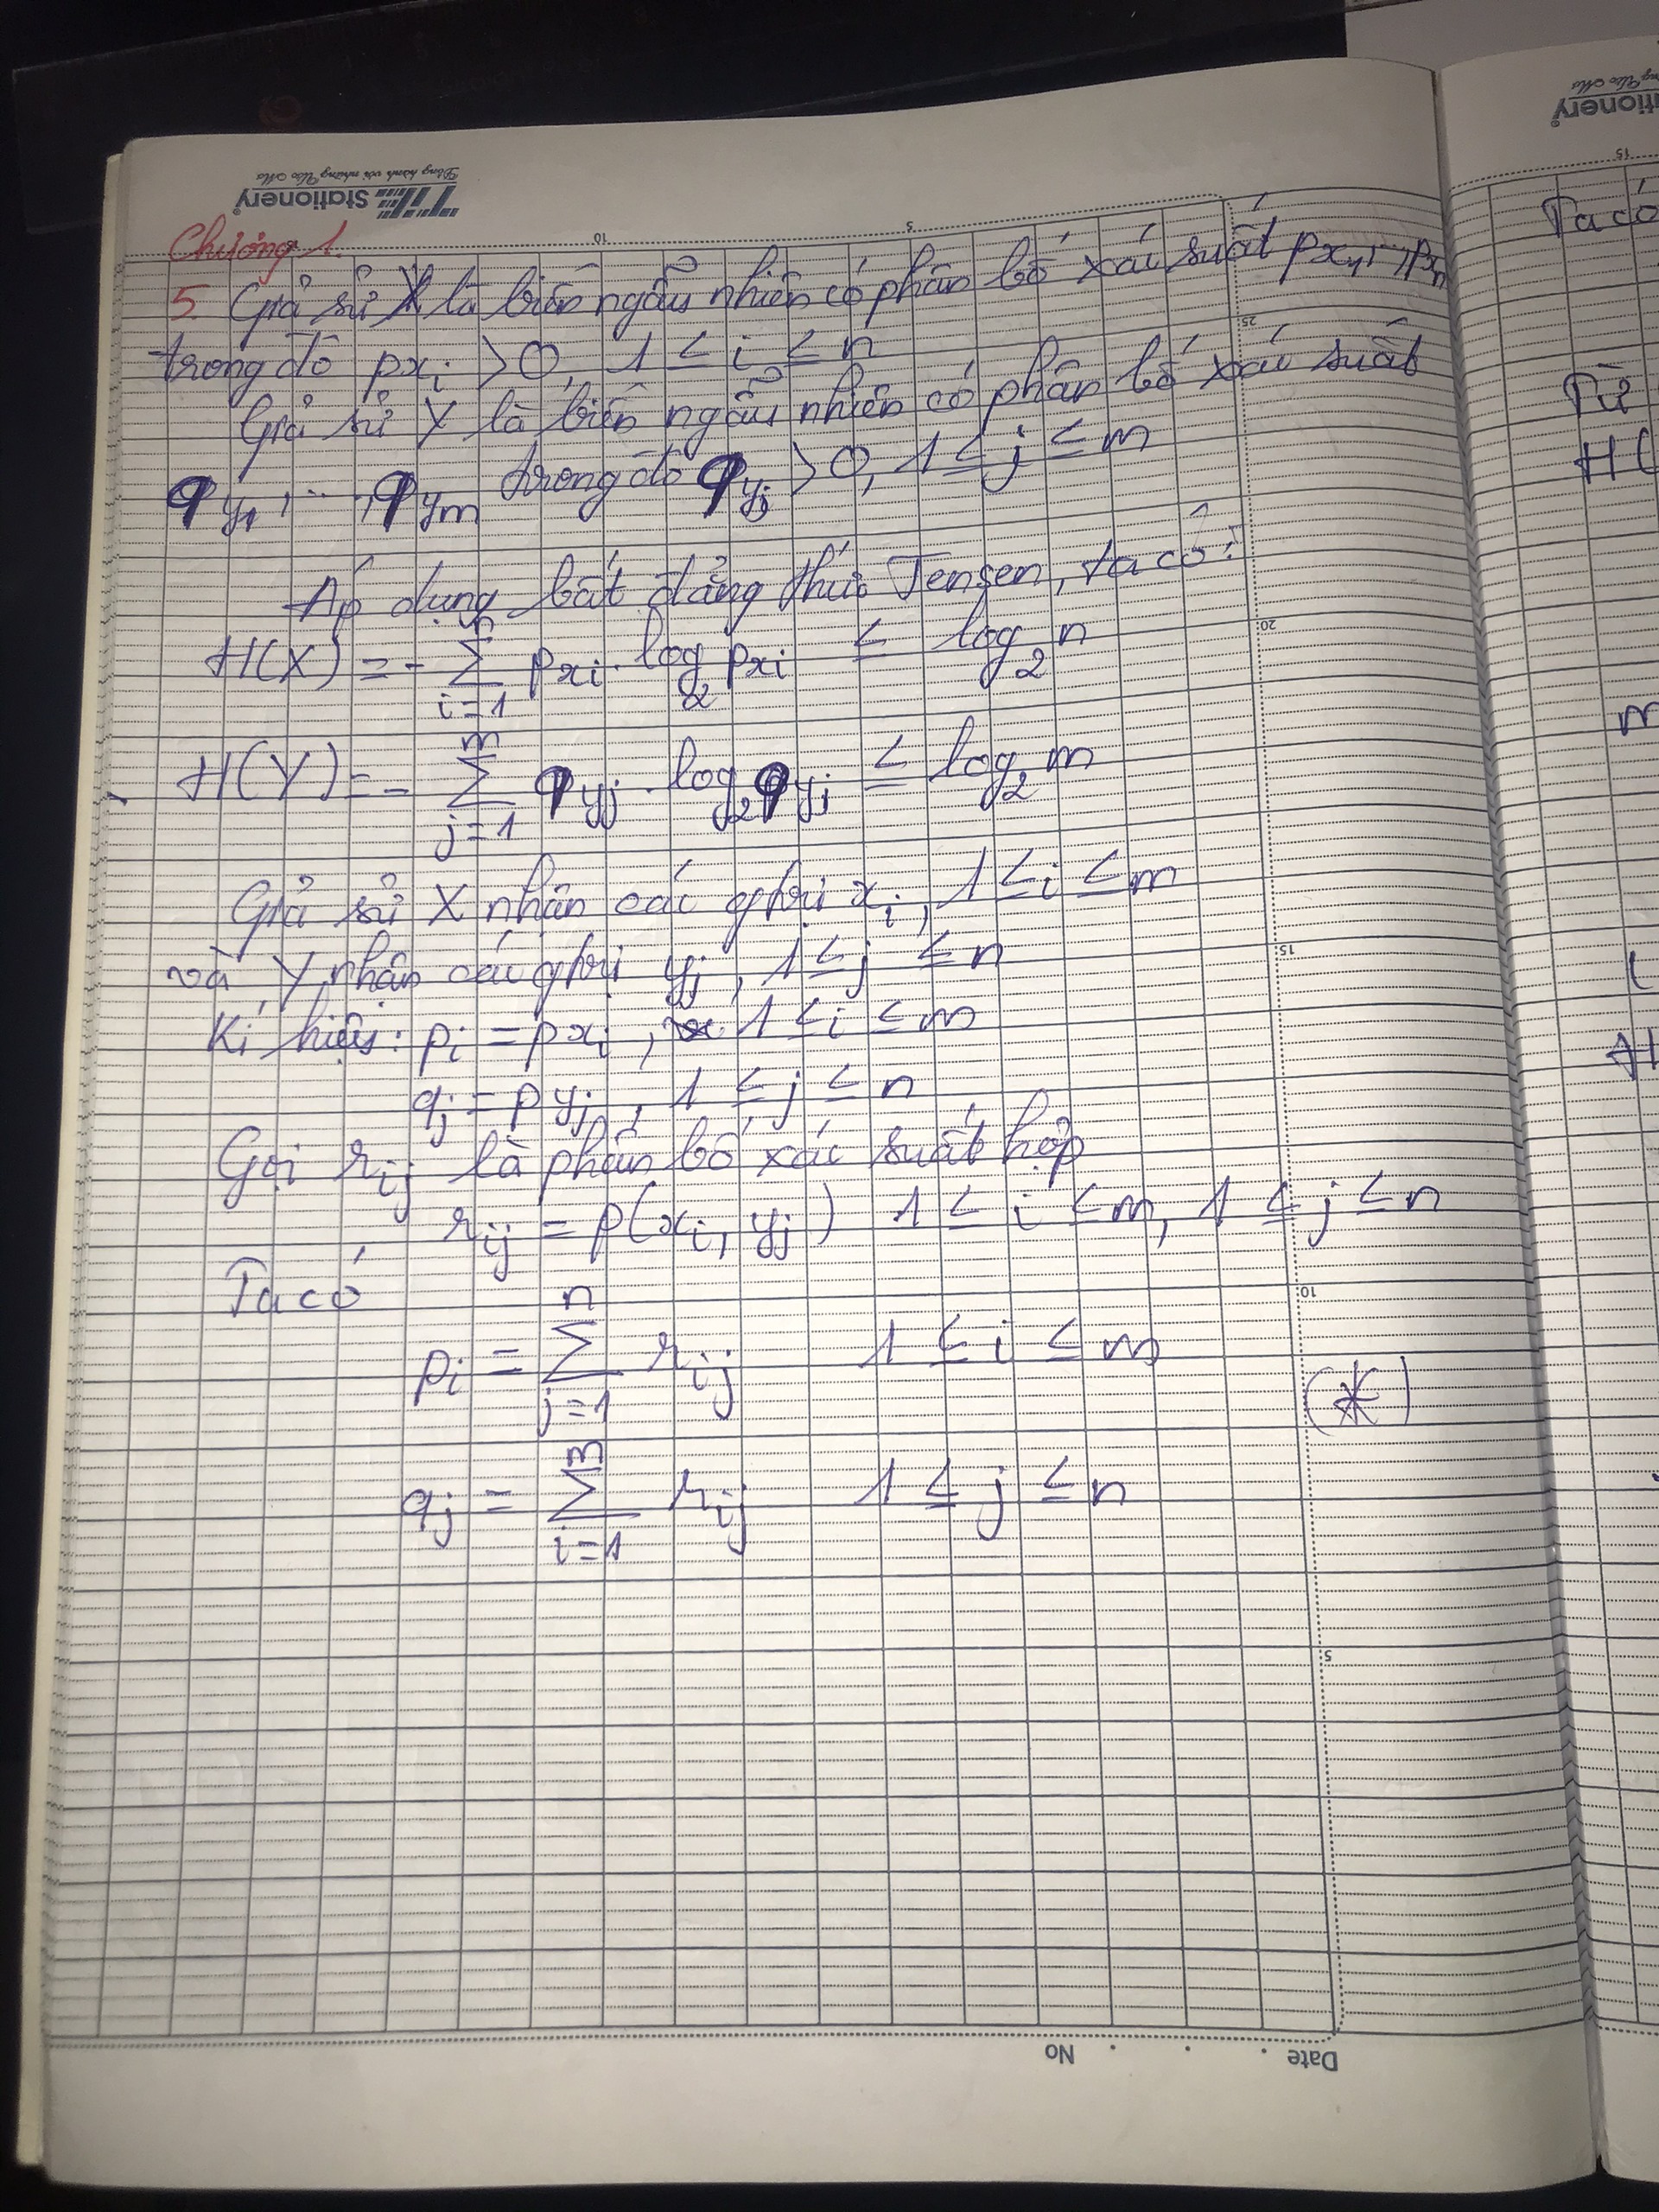 TL Stationery
Đồng hành với những Ước Mơ
Chương 1.
5. Giả sử X là biến ngẫu nhiên có phân bố xác suất px₁, ..., pxₙ
trong đó pxᵢ > 0, 1 ≤ i ≤ n
Giả sử Y là biến ngẫu nhiên có phân bố xác suất
qy₁, ..., qyₘ trong đó qyⱼ > 0, 1 ≤ j ≤ m
Áp dụng bất đẳng thức Jensen, ta có:
H(X) = - ∑ᵢ₌₁ⁿ pxᵢ . log₂ pxᵢ ≤ log₂ n
H(Y) = - ∑ⱼ₌₁ᵐ qyⱼ . log₂ qyⱼ ≤ log₂ m
Giả sử X nhận các gtrị xᵢ, 1 ≤ i ≤ m
và Y nhận các gtrị yⱼ, 1 ≤ j ≤ n
Kí hiệu: pᵢ = pxᵢ, 1 ≤ i ≤ m
qⱼ = pyⱼ, 1 ≤ j ≤ n
Gọi rᵢⱼ là phân bố xác suất hợp
rᵢⱼ = p(xᵢ, yⱼ) 1 ≤ i ≤ m, 1 ≤ j ≤ n
Ta có
pᵢ = ∑ⱼ₌₁ⁿ rᵢⱼ 1 ≤ i ≤ m
(*)
qⱼ = ∑ᵢ₌₁ᵐ rᵢⱼ 1 ≤ j ≤ n
Date
No
5
10
15
20
25
5
10
15
Ta có
Từ
H(